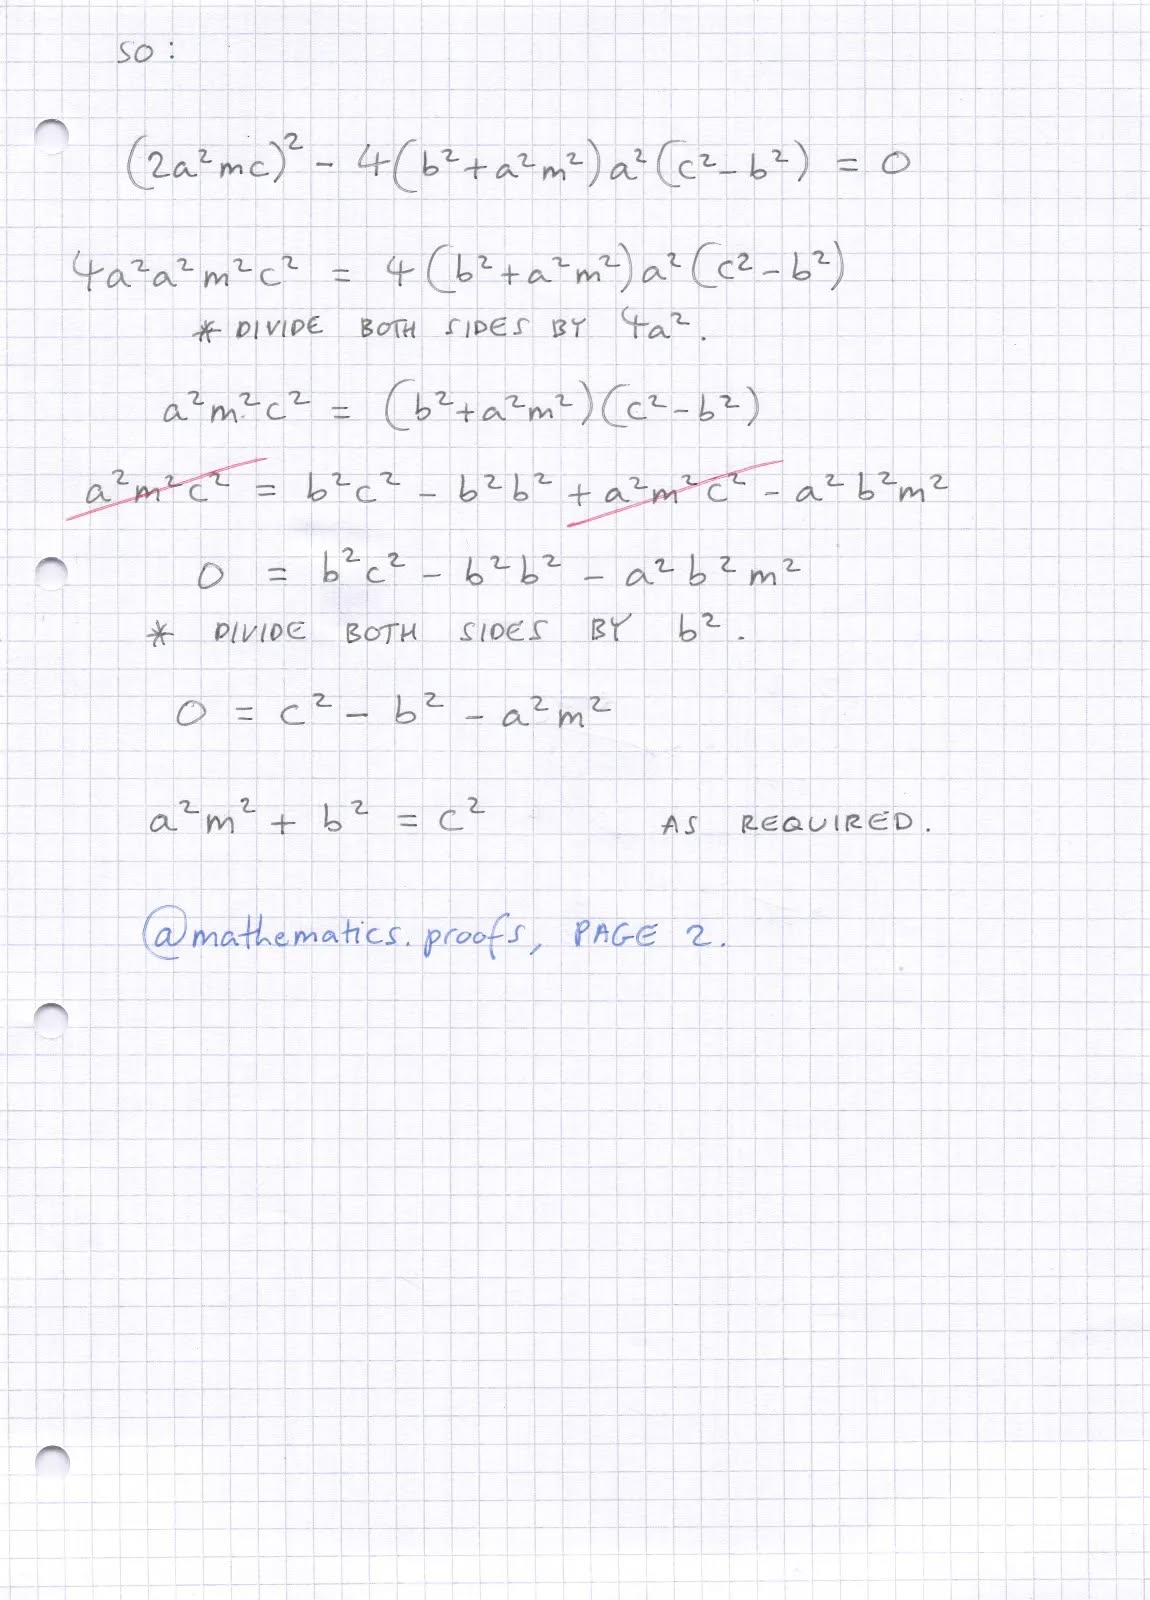 SO:
(2a²mc)² - 4(b²+a²m²)a²(c²-b²) = 0
4a²a²m²c² = 4(b²+a²m²)a²(c²-b²)
* DIVIDE BOTH SIDES BY 4a².
a²m²c² = (b²+a²m²)(c²-b²)
a²m²c² = b²c² - b²b² + a²m²c² - a²b²m²
0 = b²c² - b²b² - a²b²m²
* DIVIDE BOTH SIDES BY b².
0 = c² - b² - a²m²
a²m² + b² = c² AS REQUIRED.
@mathematics.proofs, PAGE 2.